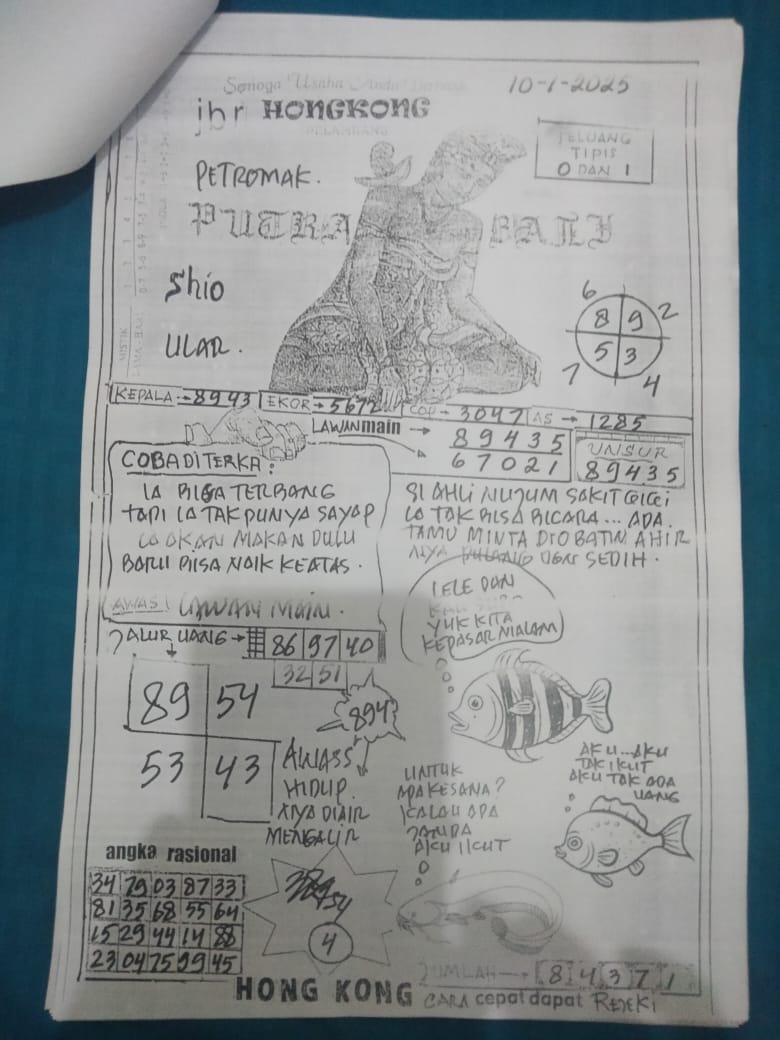 Semoga Usaha Anda
10-1-2025
jbr HONGKONG
PELAMBANG
PELUANG
TIPIS
0 DAN 1
PETROMAK.
PUTRA BALI
Shio
ULAR.
MISTIK
6
8 9 2
5 3
7 4
KEPALA → 8943 EKOR → 5672 COP → 3047 AS → 1285
LAWAN main → 89435
67021
UNSUR
89435
COBA DI TERKA:
IA BISA TERBANG
TAPI IA TAK PUNYA SAYAP
IA AKAN MAKAN DULU
BARU BISA NAIK KEATAS.
AWAS! LAWAN MAIN.
SI AHLI NUJUM SAKIT GIGI
IA TAK BISA BICARA... ADA
TAMU MINTA DIOBATIN AHIR
NYA PULANG DGN SEDIH.
LELE DAN
YUK KITA
KEPASAR MALAM
JALUR UANG → 86 97 40
32 51
89 54
53 43
894
AWASS
HIDUP.
NYA DIAIR
MENGALIR
UNTUK
APA KESANA?
KALAU ADA
JANDA
AKU IKUT
AKU...AKU
TAK IKUT
AKU TAK ADA
UANG
angka rasional
34 79 03 87 33
81 35 68 55 64
15 29 44 14 88
23 04 75 99 45
54
4
JUMLAH → 8 4 3 7 1
HONG KONG CARA cepat dapat REJEKI